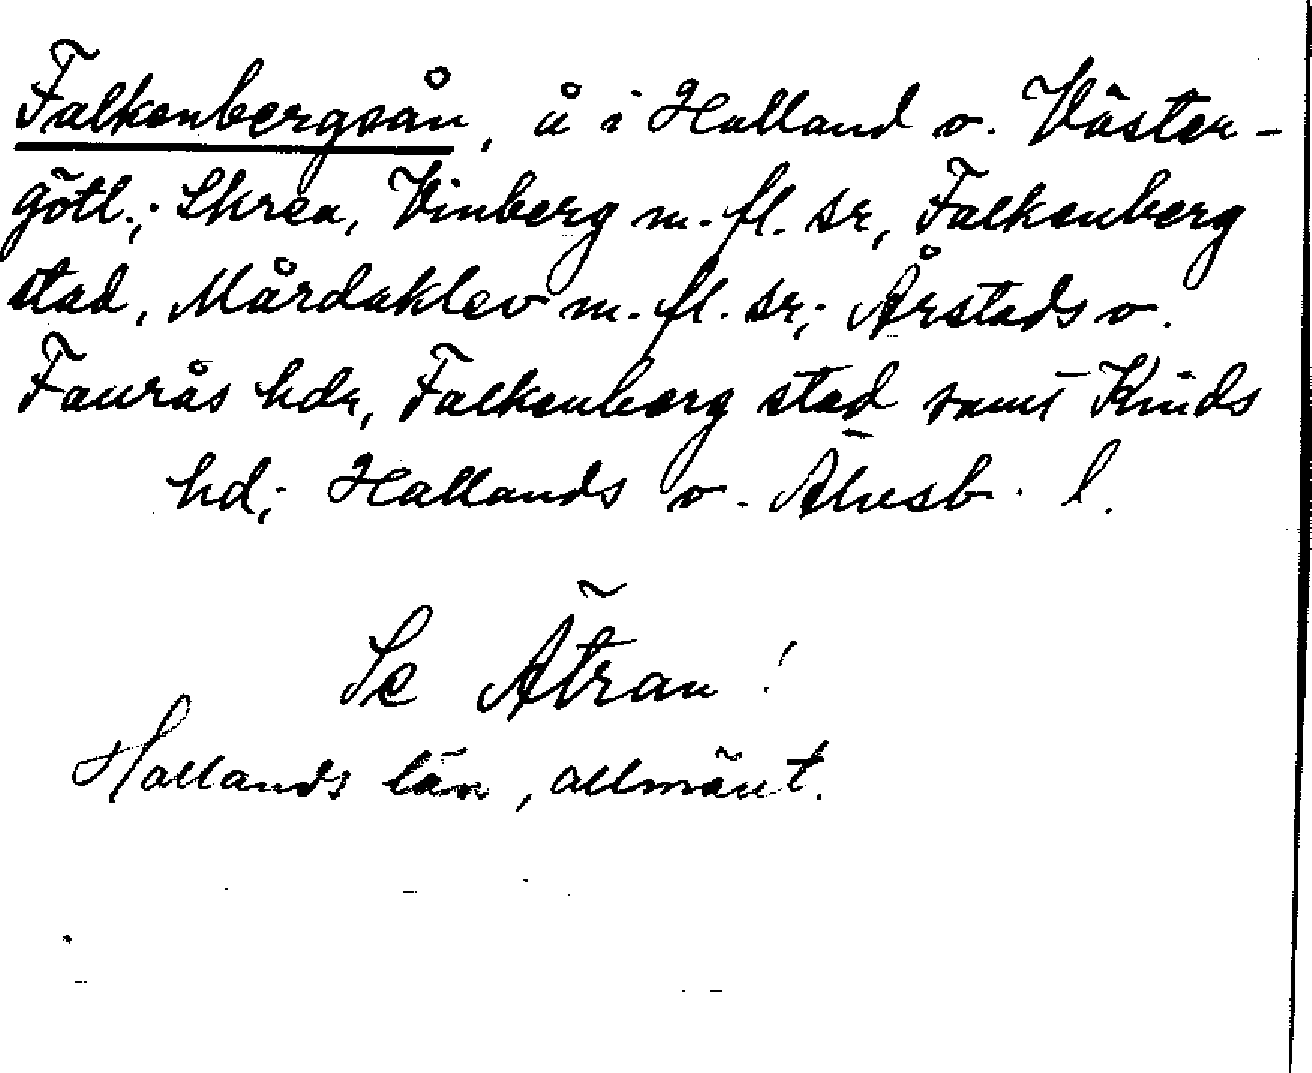 Falkenbergsån, å i Halland o. Väster-
götl.; Skrea, Vinberg m. fl. sr, Falkenberg
stad, Mårdaklev m. fl. sr; Årstads o.
Faurås hdr, Falkenberg stad samt Kinds
hd; Hallands o. Älvsb. l.
Se Ätran!
Hallands län, allmänt.